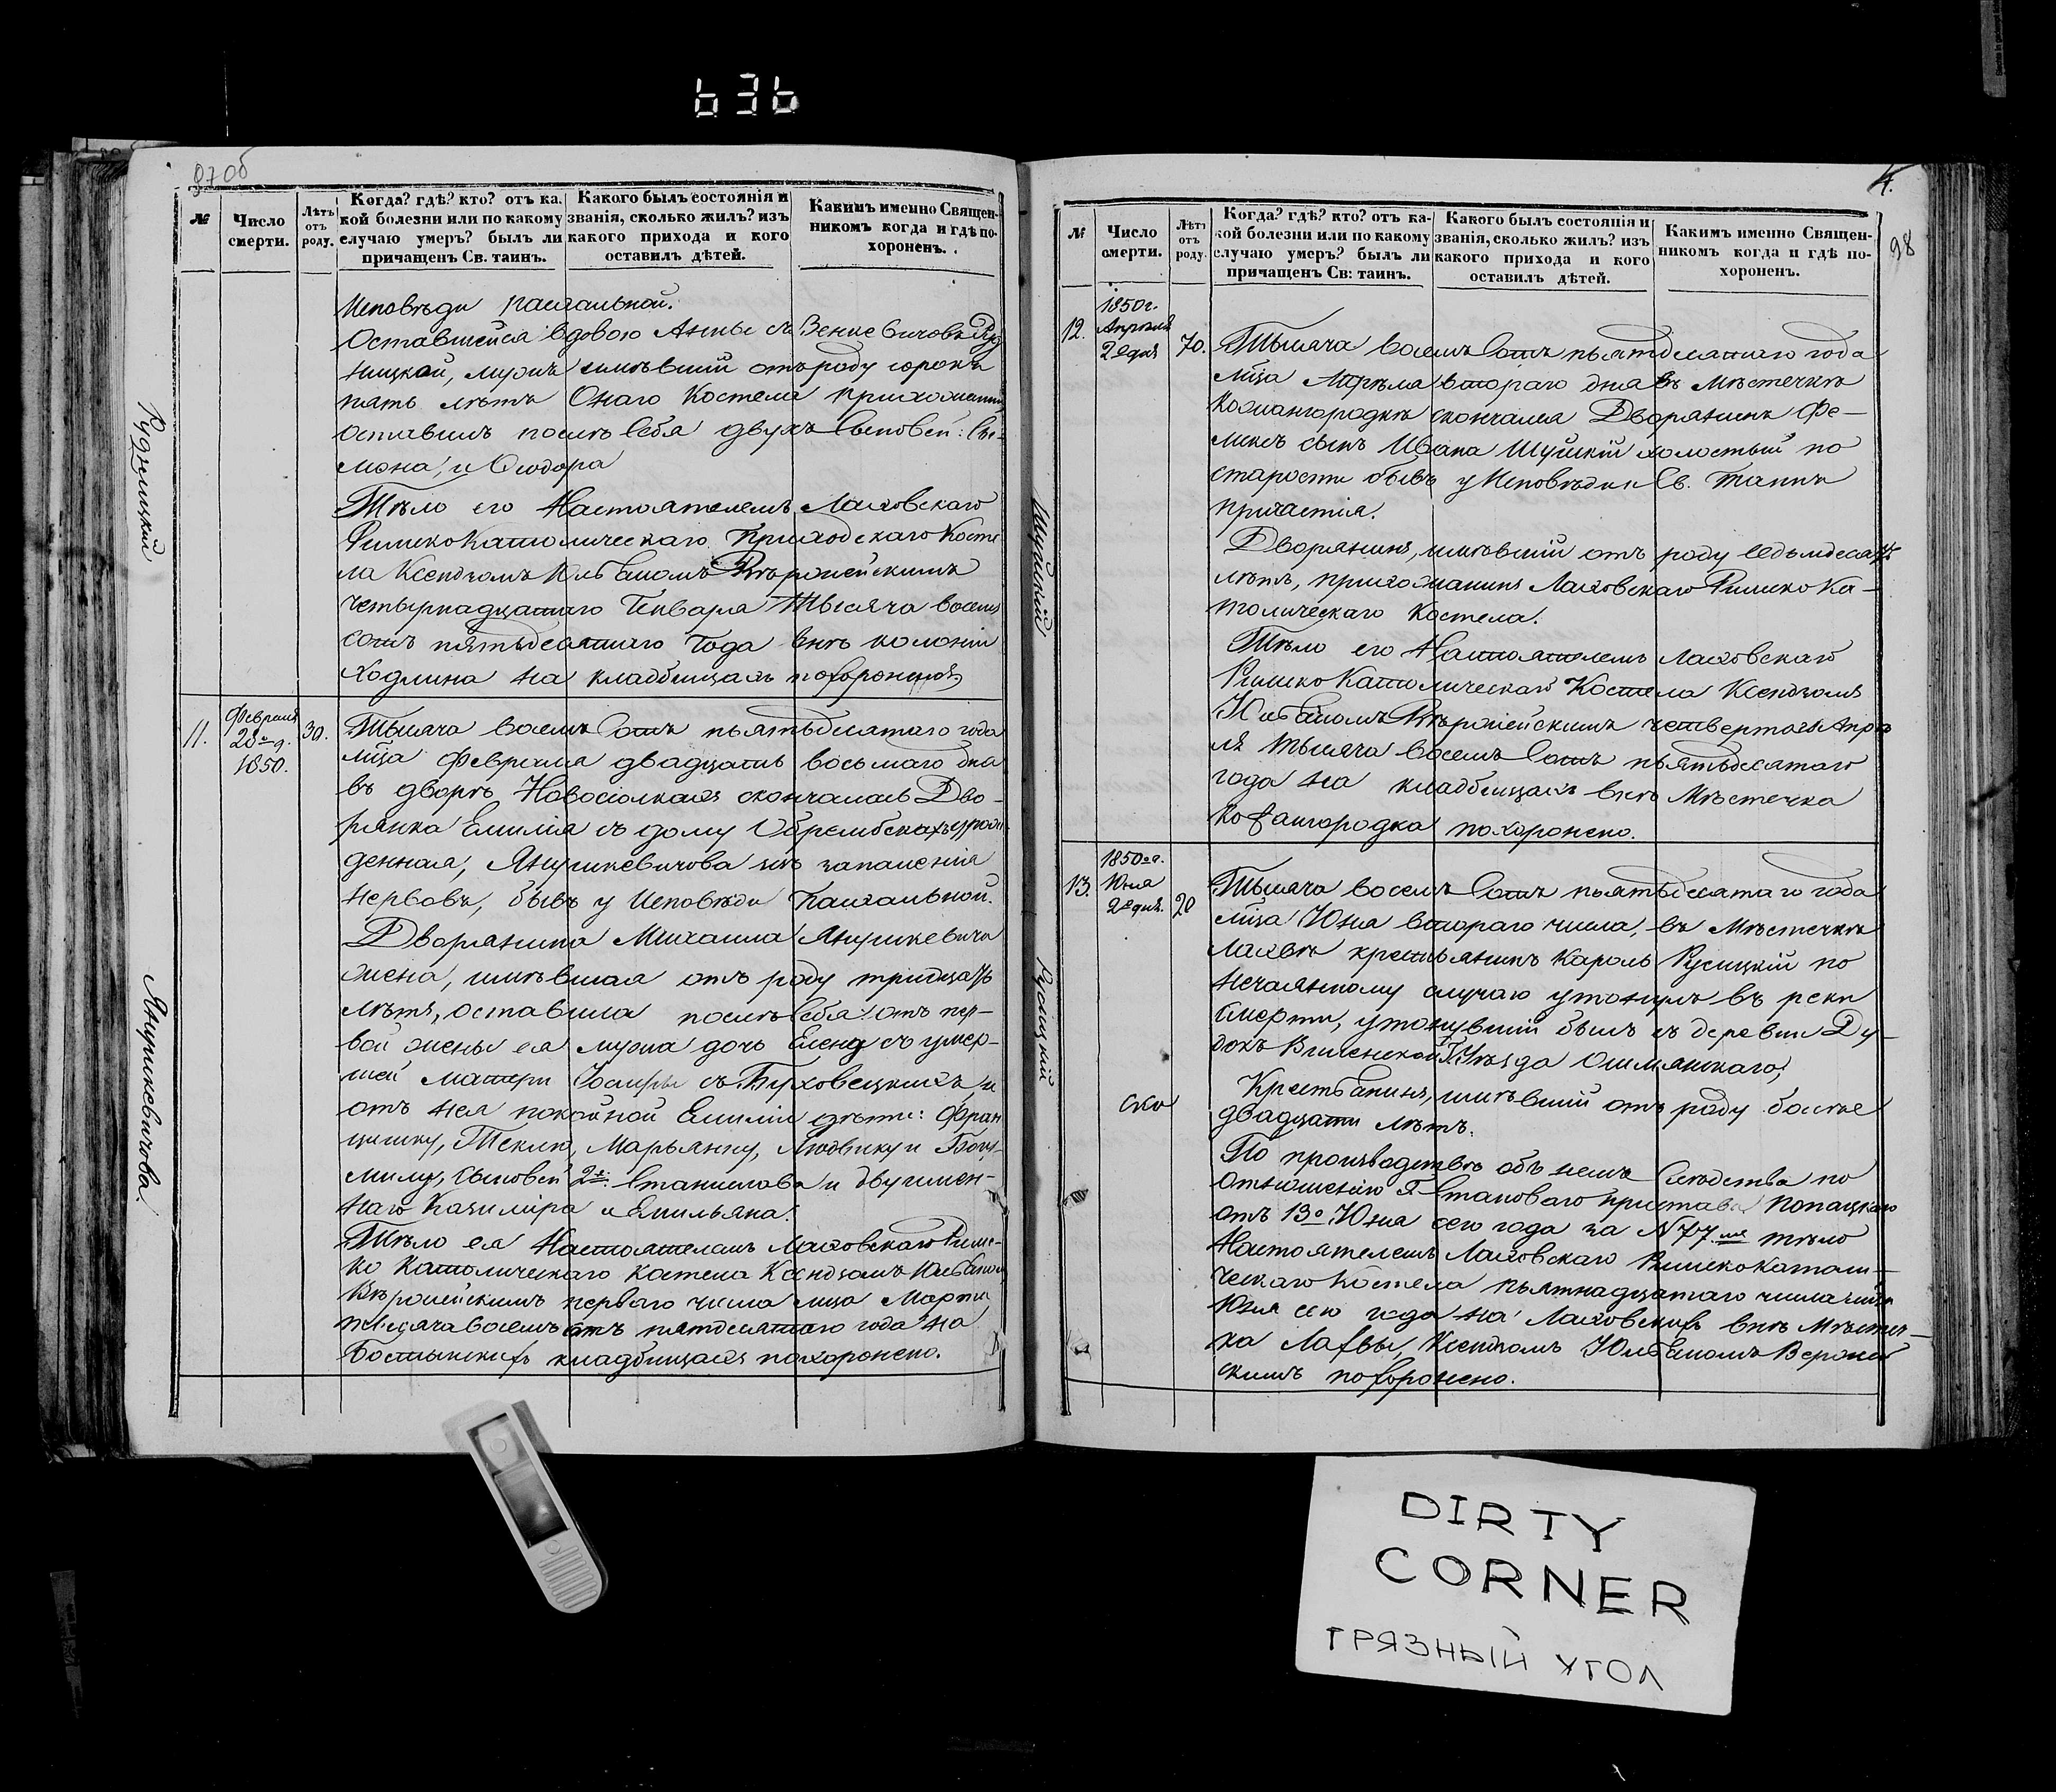 636
97об
№
Число смерти.
Лѣтъ отъ роду.
Когда? гдѣ? кто? отъ ка-
кой болезни или по какому
случаю умеръ? былъ ли
причащенъ Св. таинъ.
Какого былъ состоянія и
званія, сколько жилъ? изъ
какого прихода и кого
оставилъ дѣтей.
Какимъ именно Священ-
никомъ когда и гдѣ по-
хороненъ.
Исповѣди пасхальной.
Оставшейся вдовою Анны съ Венцевичовъ Руд
ницкой, мужъ имѣвший отъ роду сорокъ
пять лѣтъ Онаго Костела прихожанинъ
оставилъ послѣ себя двухъ сыновей: Сы-
мона, и Ѳеодора
Тѣло его Настоятелемъ Лаховскаго
Римско Католическаго Приходскаго Косте
ла Ксендзомъ Юльяномъ Вѣропейскимъ
четырнадцатого Генваря Тысяча восемь
сотъ пятьдесятаго Года внѣ колоніи
Ходлина на кладбищахъ похоронено
Рудницкій
11.
Февраля
28го д.
1850.
30.
Тысяча восемь сотъ пятьдесятаго года
мца Февраля двадцать восьмаго дня
въ дворѣ Новосіолкахъ скончалась Дво-
рянка Емилія съ дому Обрембскахъ урож-
денная, Янушкевичова изъ запаленія
нервовъ, бывъ у Исповѣди Пасхальной.
Дворянина Михаила Янушкевича
жена, имѣвшая отъ роду тридцать
лѣтъ, оставила послѣ себя: отъ пер-
вой жены ея мужа дочь Елену съ умер-
шей матери съ Буховецкихъ, и
отъ нея покойной Емиліи дѣти: Фран
цишку, Теклю, Марьянну, Людвику и Богу-
милу, сыновей 2хъ: Станислава и двуимен-
наго Казиміра и Емильяна.
Тѣло ея Настоятелемъ Лаховскаго Римс-
ко Католическаго Костела Ксендзомъ Юльяномъ
Вѣропейскимъ перваго числа мца Марта
тысяча восемь сотъ пятдесятаго года на
Бостынскихъ кладбищахъ похоронено.
Янушкевичова.
98
№
Число смерти.
Лѣтъ отъ роду.
Когда? гдѣ? кто? отъ ка-
кой болезни или по какому
случаю умеръ? былъ ли
причащенъ Св: таинъ.
Какого былъ состоянія и
званія, сколько жилъ? изъ
какого прихода и кого
оставилъ дѣтей.
Какимъ именно Священ-
никомъ когда и гдѣ по-
хороненъ.
12.
1850г.
Апрѣля
2е дня
70.
Тысяча восемь сотъ пьятдесятаго года
мца Апрѣля втораго дня въ Мѣстечкѣ
Кожангородкѣ скончался Дворянинъ Фе-
ликсъ сынъ Ивана Шуйскій холостый по
старости бывъ у Исповѣди и Св. Таинъ
причастія.
Дворянинъ, имѣвший отъ роду седьмдесятъ
лѣтъ, прихожанинъ Лаховскаго Римско Ка-
толическаго Костела.
Тѣло его Настоятелемъ Лаховскаго
Римско Католическаго Костела Ксендзомъ
Юльяномъ Вѣропейскимъ четвертаго Апрѣ
ля тысяча восемь сотъ пьятьдесятаго
года на кладбищахъ внѣ Мѣстечка
Кожангородка похоронено.
Шуйскій
13.
1850го г.
Юня
2е дня.
20
Тысяча восемь сотъ пьятьдесятаго года
мца Юня втораго числа, въ Мѣстечкѣ
Лахвѣ крестьянинъ Кароль Русицкій по
нечаянному случаю утонулъ въ реки
Смерти, утонувший былъ съ деревни Ду-
бокъ Виленской Г. Уѣзда Ошмянскаго,
Крестьянинъ, имѣвший отъ роду болѣе
двадцати лѣтъ.
По производствѣ объ немъ Слѣдства по
отношенію Г. Становаго пристава
отъ 13о Юня сего года за N 77.мъ тѣло
Настоятелемъ Лаховскаго Римско Католи-
ческаго Костела пьятнадцатаго числа мца
Юня сего года на Лаховскихъ внѣ Мѣстеч-
ка Лахвы, Ксендзомъ Юльяномъ Веропей
скимъ похоронено.
Русицкій
DIRTY
CORNER
ГРЯЗНЫЙ УГОЛ